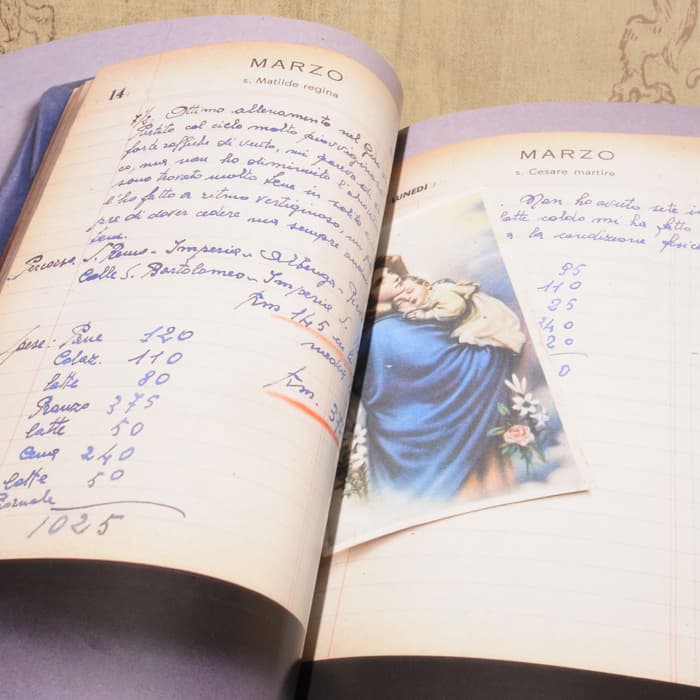 MARZO
s. Matilde regina
14
Ottimo allenamento nel
col ciclo molto
forte raffiche di vento, mi pareva di
co, ma non ho diminuito
sono trovato molto bene in salita
l'ho fatto a ritmo vertiginoso, mi
pre di dover cedere ma sempre
bene.
Percorso S. Remo - Imperia - Albenga -
Calle S. Bartolomeo - Imperia S.
Km 145
media
Km.
spese: Pane 120
Colaz. 110
latte 80
Pranzo 375
latte 50
Cena 240
latte 50
Giornale
1025
MARZO
s. Cesare martire
LUNEDI
Non ho avuto sete
latte caldo mi ha fatto
a la condizione fisica
95
110
25
240
20
0